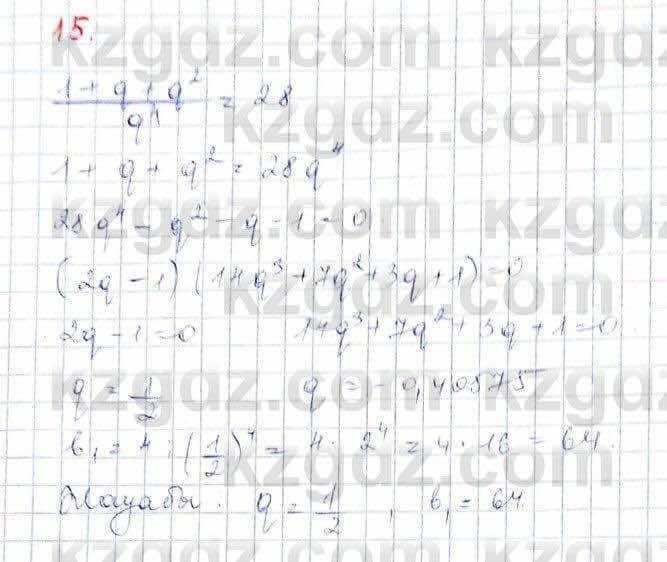 15.
(1 + q + q²)/q⁴ = 28
1 + q + q² = 28q⁴
28q⁴ - q² - q - 1 = 0
(2q - 1)(14q³ + 7q² + 3q + 1) = 0
2q - 1 = 0 14q³ + 7q² + 3q + 1 = 0
q = 1/2 q = -0,40575
b₁ = 4 : (1/2)⁴ = 4 · 2⁴ = 4 · 16 = 64.
Жауабы: q = 1/2, b₁ = 64
kzgdz.com
kzgdz.com
kzgdz.com
kzgdz.com
kzgdz.com
kzgdz.com
kzgdz.com
kzgdz.com